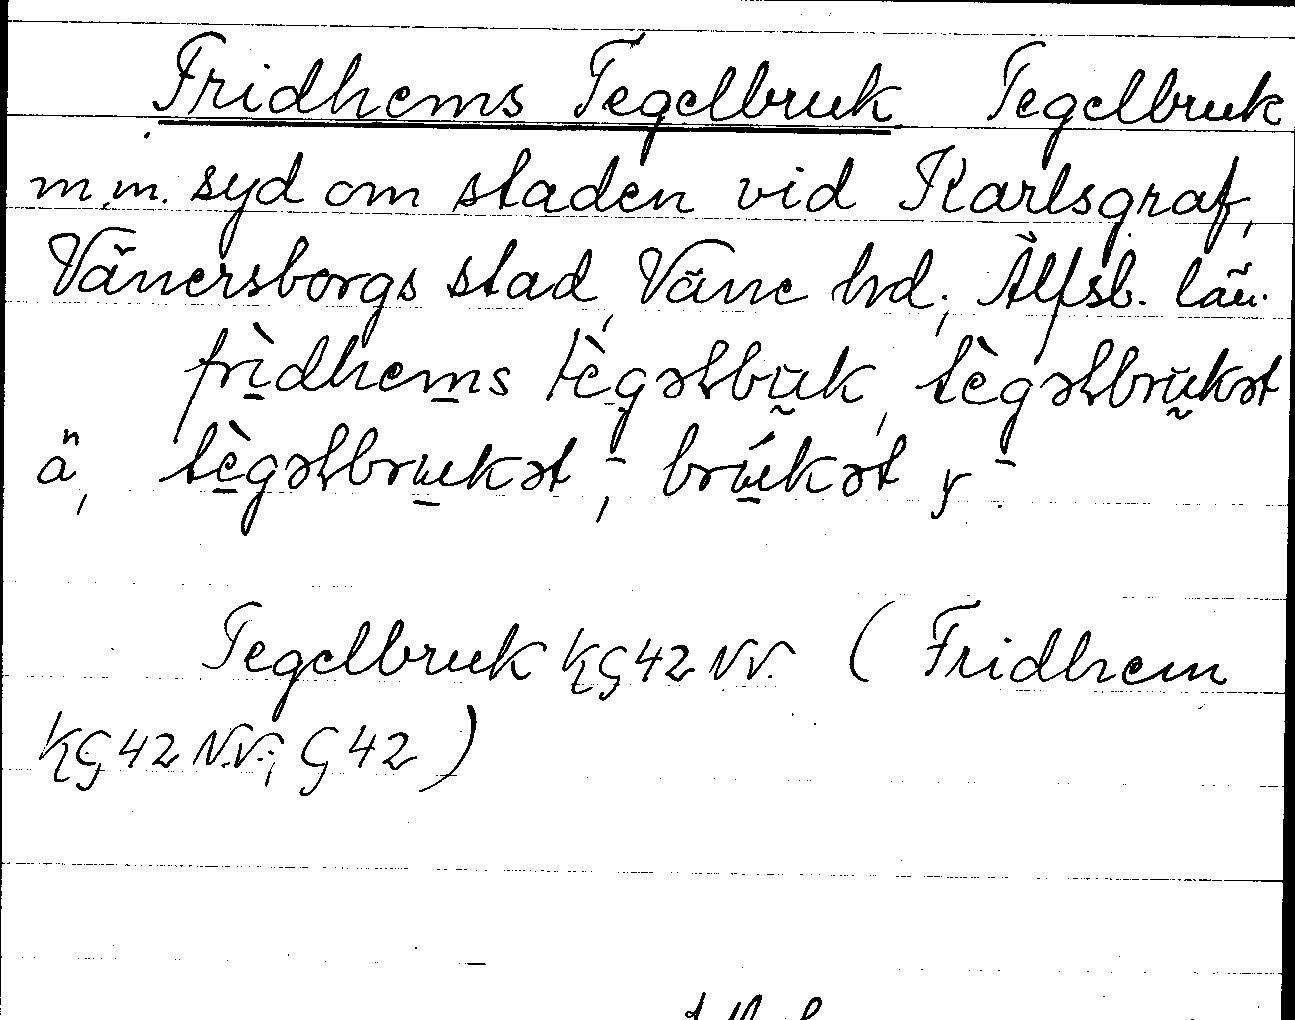 Fridhems Tegelbruk Tegelbruk
m.m. syd om staden vid Karlsgraf,
Vänersborgs stad, Väne hd, Älfsb. län.
frìdhems tègəlbrŭk, tègəlbrŭkət
ä, tègəlbrukət, brúkət y
Tegelbruk KG 42 NV. (Fridhem
KG 42 N.V.; G 42)